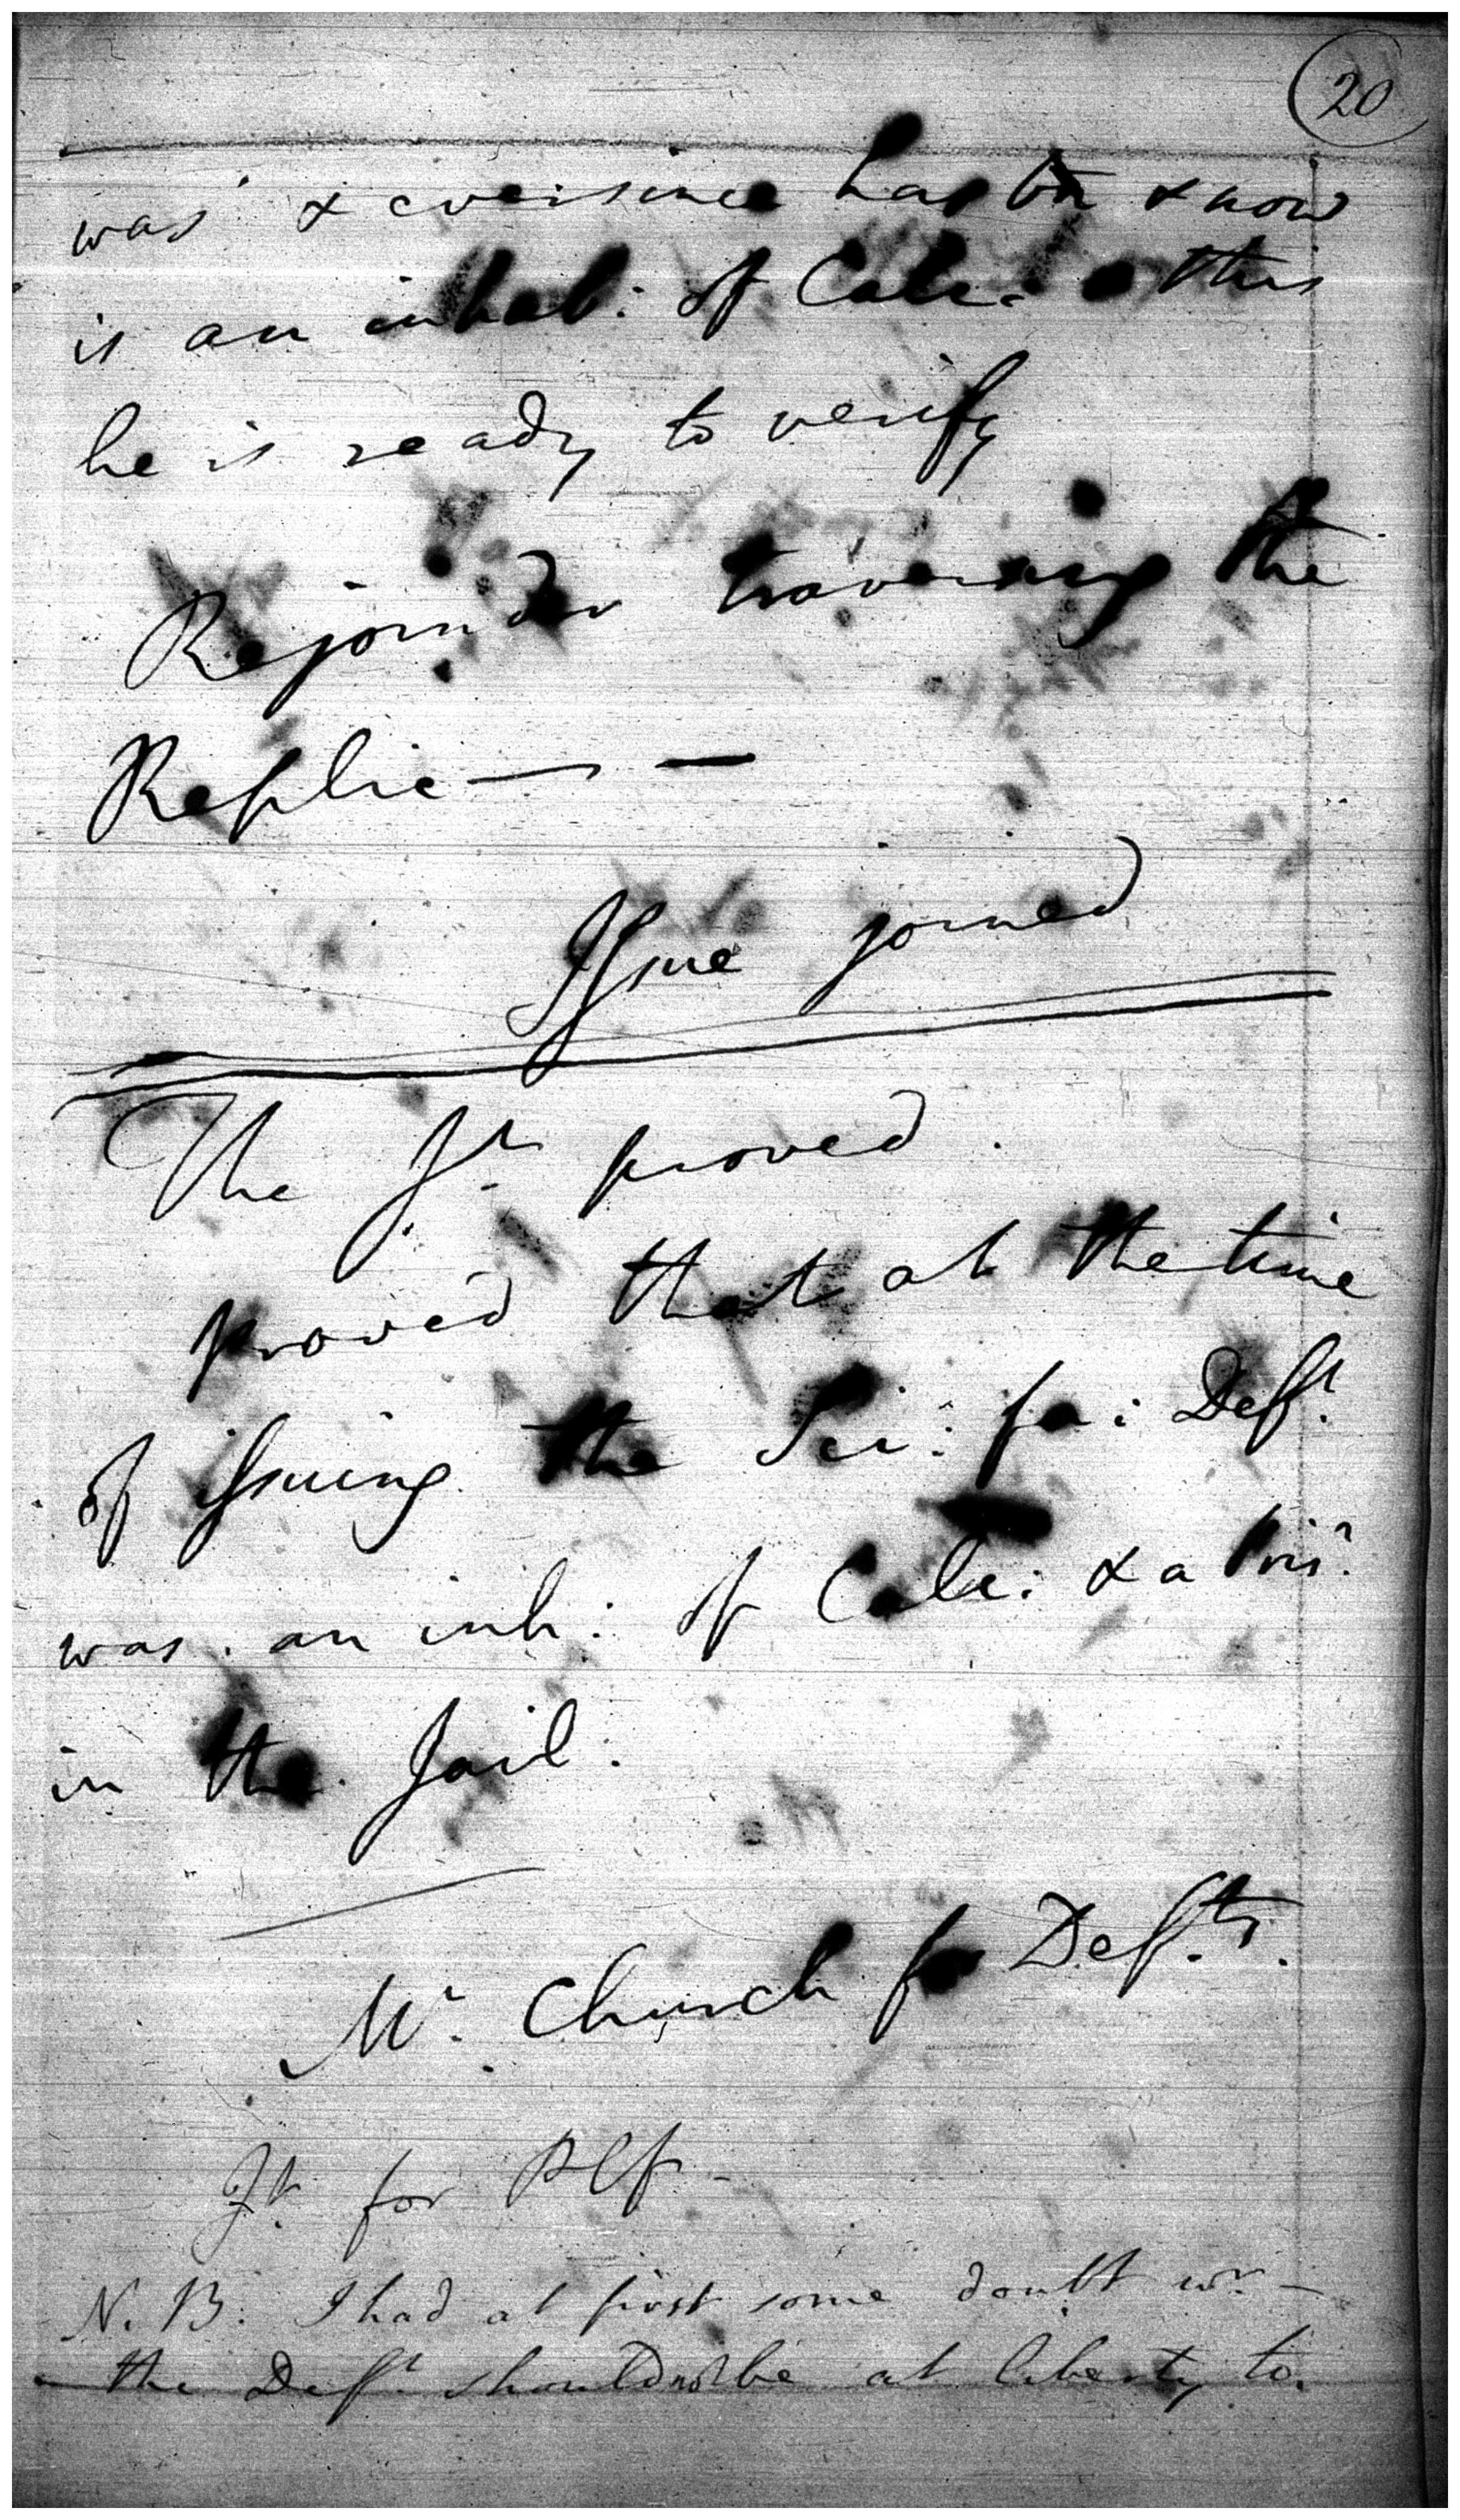 20
was & ever since has bn & now
is an inhab: of Calc: & this
he is ready to verify
Rejoinder traversing the
Replic——
Issue joined
The Jt. proved.
proved that at the time
of issuing the Sci: fa: Deft.
was. an inh: of Calc: & a Prisr.
in the Jail.
Mr. Church for Defts.
Jt. for Plf.
N.B. I had at first some doubt wr.—
the Deft. should not be at liberty to.